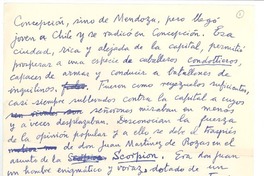 Concepción, sino de Mendoza, pero llegó
joven a Chile y se radicó en Concepción. Esa
ciudad, rica y alejada de la capital, permitía
prosperar a una especie de caballeros condottieros,
capaces de armar y conducir a batallones de
inquilinos. Fueron como reyezuelos sufrientes,
casi siempre sublevados contra la capital a cuyos
señorones miraban en menos
y a veces desplazaban. Desconocían la fuerza
de la opinión popular y a ello se debe el traspiés
de don Juan Martínez de Rozas en el
asunto de la Scorpion. Era don Juan
un hombre enigmático y voraz, dotado de un